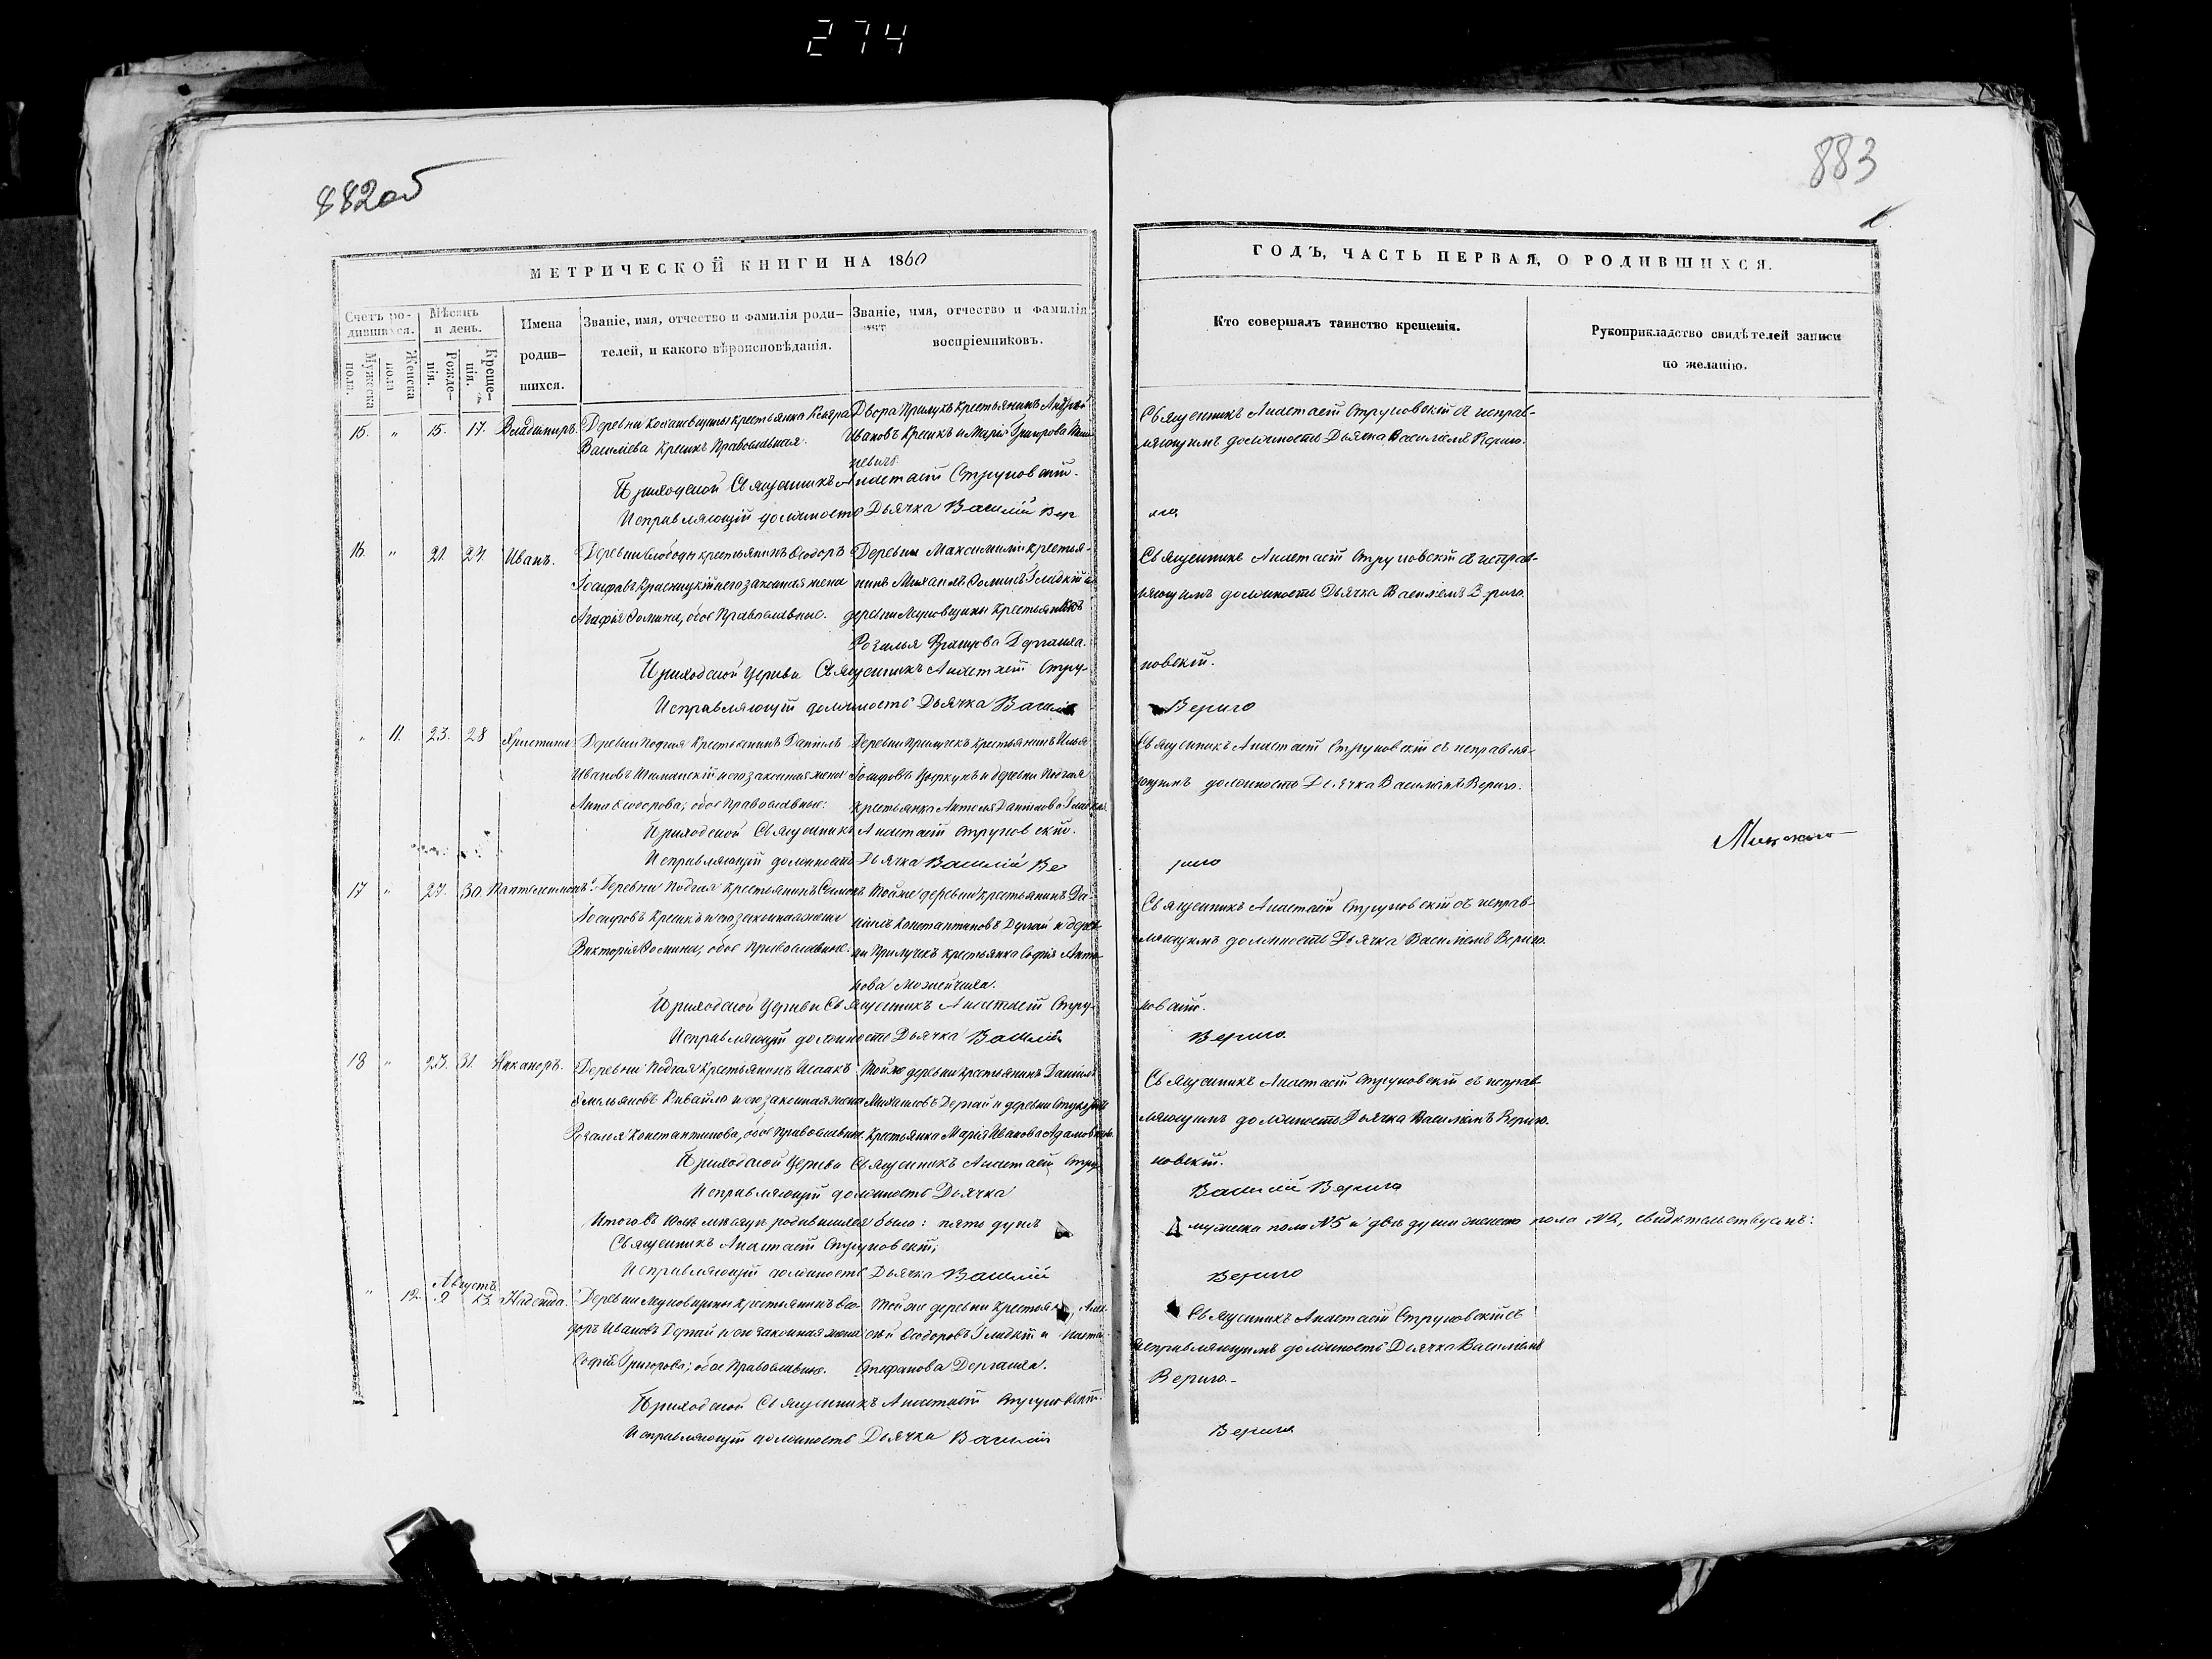 274
882об
883
МЕТРИЧЕСКОЙ КНИГИ НА 1860
ГОДЪ, ЧАСТЬ ПЕРВАЯ, О РОДИВШИХСЯ.
Счетъ родившихся.
Мужеска пола.
Женска пола
Мѣсяцъ и день.
Рожденія.
Крещенія.
Имена родившихся.
Званіе, имя, отчество и фамилія родителей, и какого вѣроисповѣданія.
Званіе, имя, отчество и фамилія воспріемниковъ.
Кто совершалъ таинство крещенія.
Рукоприкладство свидѣтелей записи по желанію.
15. " 15. 17. Владимиръ.
Деревни крестьянка
Василіева Крецкъ Православная.
Двора Прилукъ крестьянинъ Андрей
Ивановъ Крецкъ и Марія Григорова
Священникъ Анастасій Струковскій съ исправ-
ляющимъ должность Дьячка Василіемъ Верыго.
Приходской Священникъ Анастасій Струковскій.
Исправляющій должность Дьячка Василій Вер
ыго
16. " 21. 24. Иванъ.
Деревни Слободы крестьянинъ Ѳеодоръ
Іосифовъ Красницкій и его законная жена
Агафія Фомина, обое Православные.
Деревни Максимили крестья-
нинъ Михаилъ Фоминъ Гладкій и
деревни крестьянка
Розалья Дергачка.
Священникъ Анастасій Струковскій съ исправ-
ляющимъ должность Дьячка Василіемъ Верыго.
Приходской Церкви Священникъ Анастасій Стру-
ковскій.
Исправляющій должность Дьячка Василій
Верыго
" 11. 23. 28 Христина
Деревни Подгая Крестьянинъ Даніилъ
Ивановъ Шиманскій и его законная жена
Анна Ѳеодорова, обое Православные:
Деревни Прилучекъ Крестьянинъ Илья
Іосифовъ Цыркунъ и деревни Подгая
крестьянка Антоля Данилова
Священникъ Анастасій Струковскій съ исправля-
ющимъ должность Дьячка Василіемъ Верыго.
Приходской Священникъ Анастасій Струковскій.
Исправляющій должность Дьячка Василій Ве
рыго
17 " 27. 30. Пантелеимонъ.
Деревни Подгая крестьянинъ Симонъ
Іосифовъ Крецкъ и его законная жена
Викторія Фомина, обое Православные.
Тойже деревни крестьянинъ Да-
ніилъ Константиновъ Дергай и дерев-
ни Прилучекъ крестьянка Софія Анто-
нова Можейчика.
Священникъ Анастасій Струковскій съ исправ-
ляющимъ должность Дьячка Василіемъ Верыго.
Приходской Церкви Священникъ Анастасій Стру-
ковскій.
Исправляющій должность Дьячка Василій
Верыго.
18 " 31. Никаноръ.
Деревни Подгая Крестьянинъ Исаакъ
Емельяновъ Кивайло и его законная жена
Розалья Константинова, обое Православные.
Тойже деревни крестьянинъ Даніилъ
Михаиловъ Дергай и деревни
Крестьянка Марія Иванова
Священникъ Анастасій Струковскій съ исправ-
ляющимъ должность Дьячка Василіемъ Верыго.
Приходской Церкви Священникъ Анастасій Стру-
ковскій.
Исправляющій должность Дьячка
Василій Верыго
Итого въ Юлѣ мѣсяцѣ родившихся было: пять душъ
мужеска пола №5 и двѣ души женска пола №2, свидѣтельствуемъ:
Священникъ Анастасій Струковскій;
Исправляющій должность Дьячка Василій
Верыго
Августъ
" 12. 13. Надежда.
Деревни крестьянинъ Ѳео-
доръ Ивановъ Дергай и его законная жена
Софія Григорова; обое Православные.
Тойже деревни крестья
Ѳеодоровъ Гладкій и
Стефанова Дергачка.
Священникъ Анастасій Струковскій съ
исправляющимъ должность Дьячка Василіемъ
Верыго.
Приходской Священникъ Анастасій Струковскій.
Исправляющій должность Дьячка Василій
Верыго